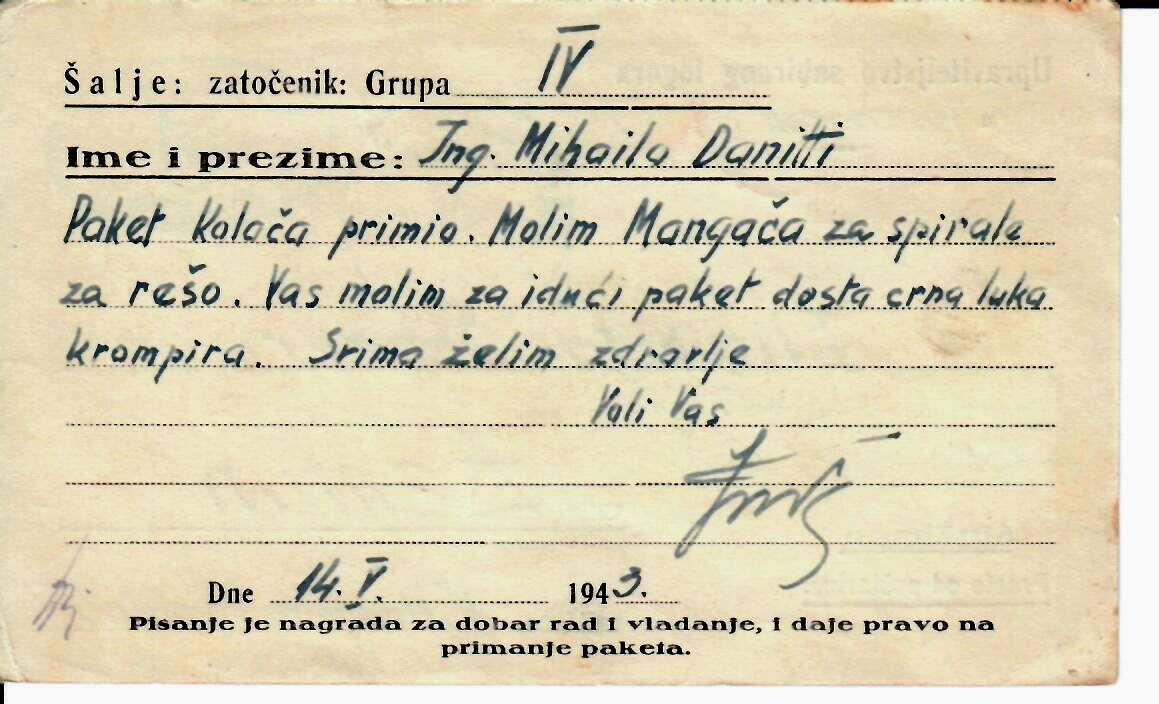 Šalje: zatočenik: Grupa IV
Ime i prezime: Ing. Mihailo Danitti
Paket kolača primio. Molim Mangača za spirale
za rešo. Vas molim za idući paket dosta crna luka
krompira. Svima želim zdravlje
Voli Vas
Dne 14. V. 1943.
Pisanje je nagrada za dobar rad i vladanje, i daje pravo na
primanje paketa.